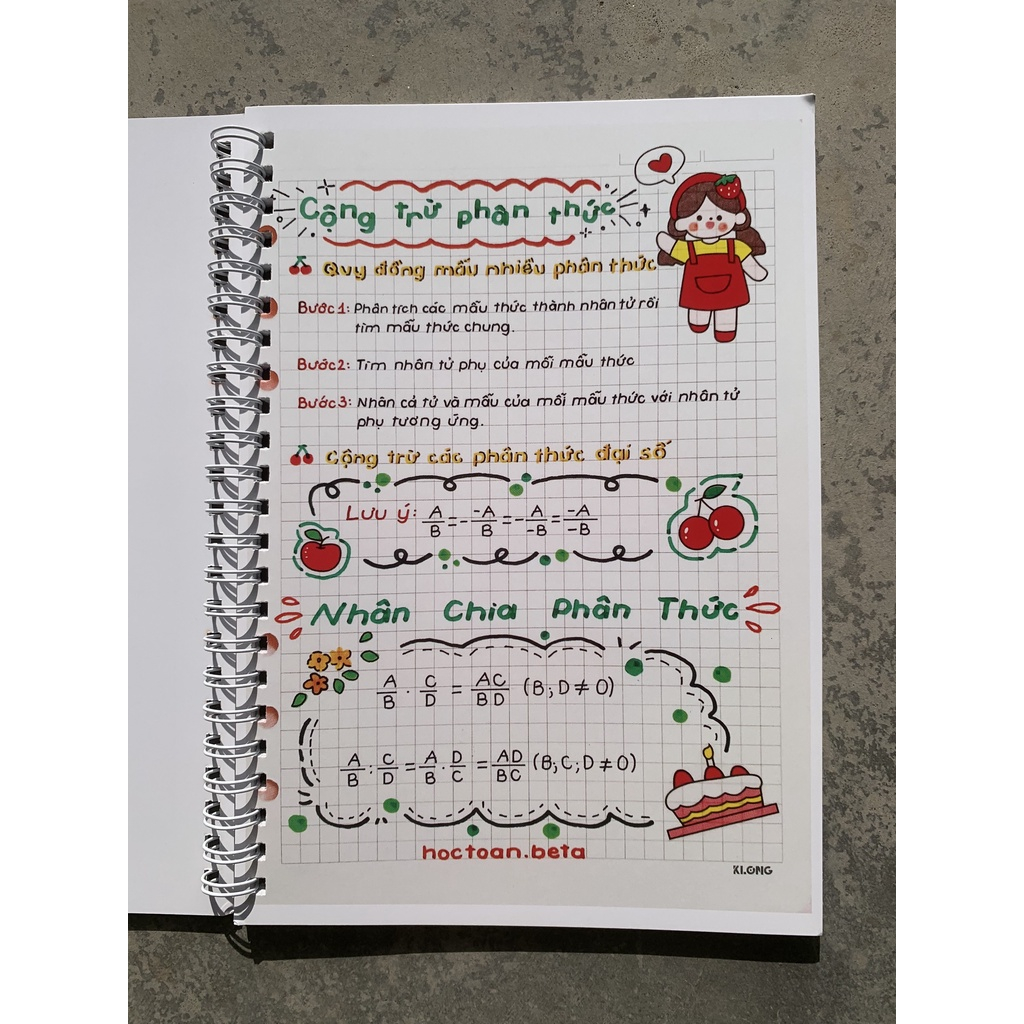 Cộng trừ phân thức
Quy đồng mẫu nhiều phân thức
Bước 1: Phân tích các mẫu thức thành nhân tử rồi
tìm mẫu thức chung.
Bước 2: Tìm nhân tử phụ của mỗi mẫu thức
Bước 3: Nhân cả tử và mẫu của mỗi mẫu thức với nhân tử
phụ tương ứng.
Cộng trừ các phân thức đại số
Lưu ý: A/B = - -A/B = - A/-B = -A/-B
Nhân Chia Phân Thức
A/B . C/D = AC/BD (B; D ≠ 0)
A/B : C/D = A/B . D/C = AD/BC (B; C; D ≠ 0)
hoctoan.beta
KLONG